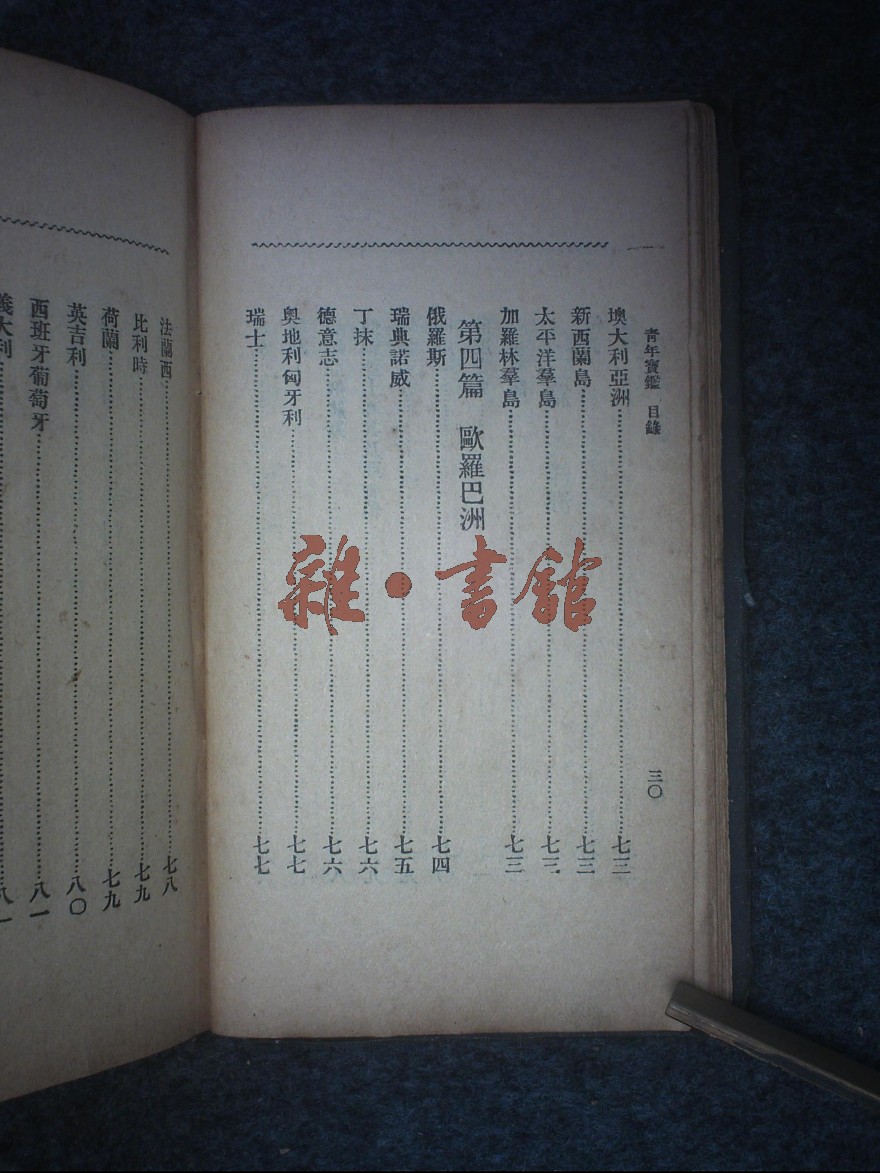 青年寶鑑 目錄
三〇
墺大利亞洲 七三
新西蘭島 七三
太平洋羣島 七三
加羅林羣島 七三
第四篇 歐羅巴洲
俄羅斯 七四
瑞典諾威 七五
丁抹 七六
德意志 七六
奧地利匈牙利 七七
瑞士 七七
法蘭西 七八
比利時 七九
荷蘭 七九
英吉利 八〇
西班牙葡萄牙 八一
義大利 八一
雜·書館